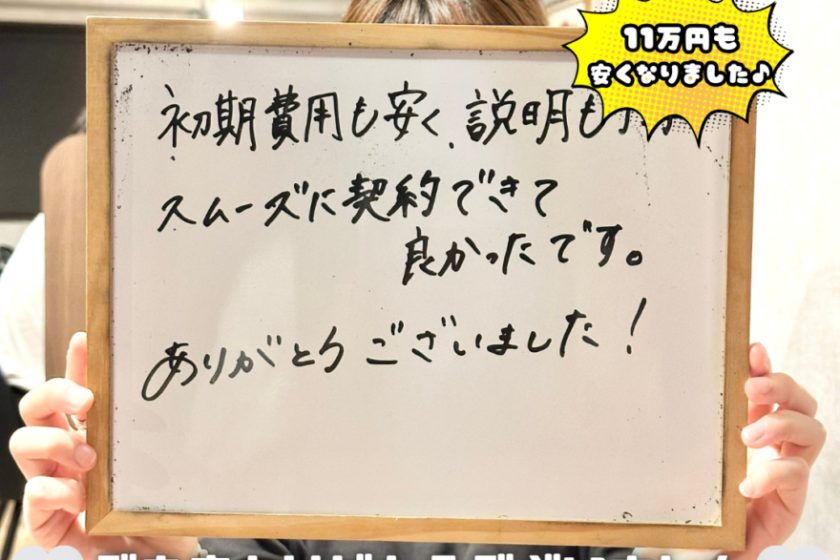 11万円も
安くなりました♪
初期費用も安く、説明も
スムーズに契約できて
良かったです。
ありがとうございました！